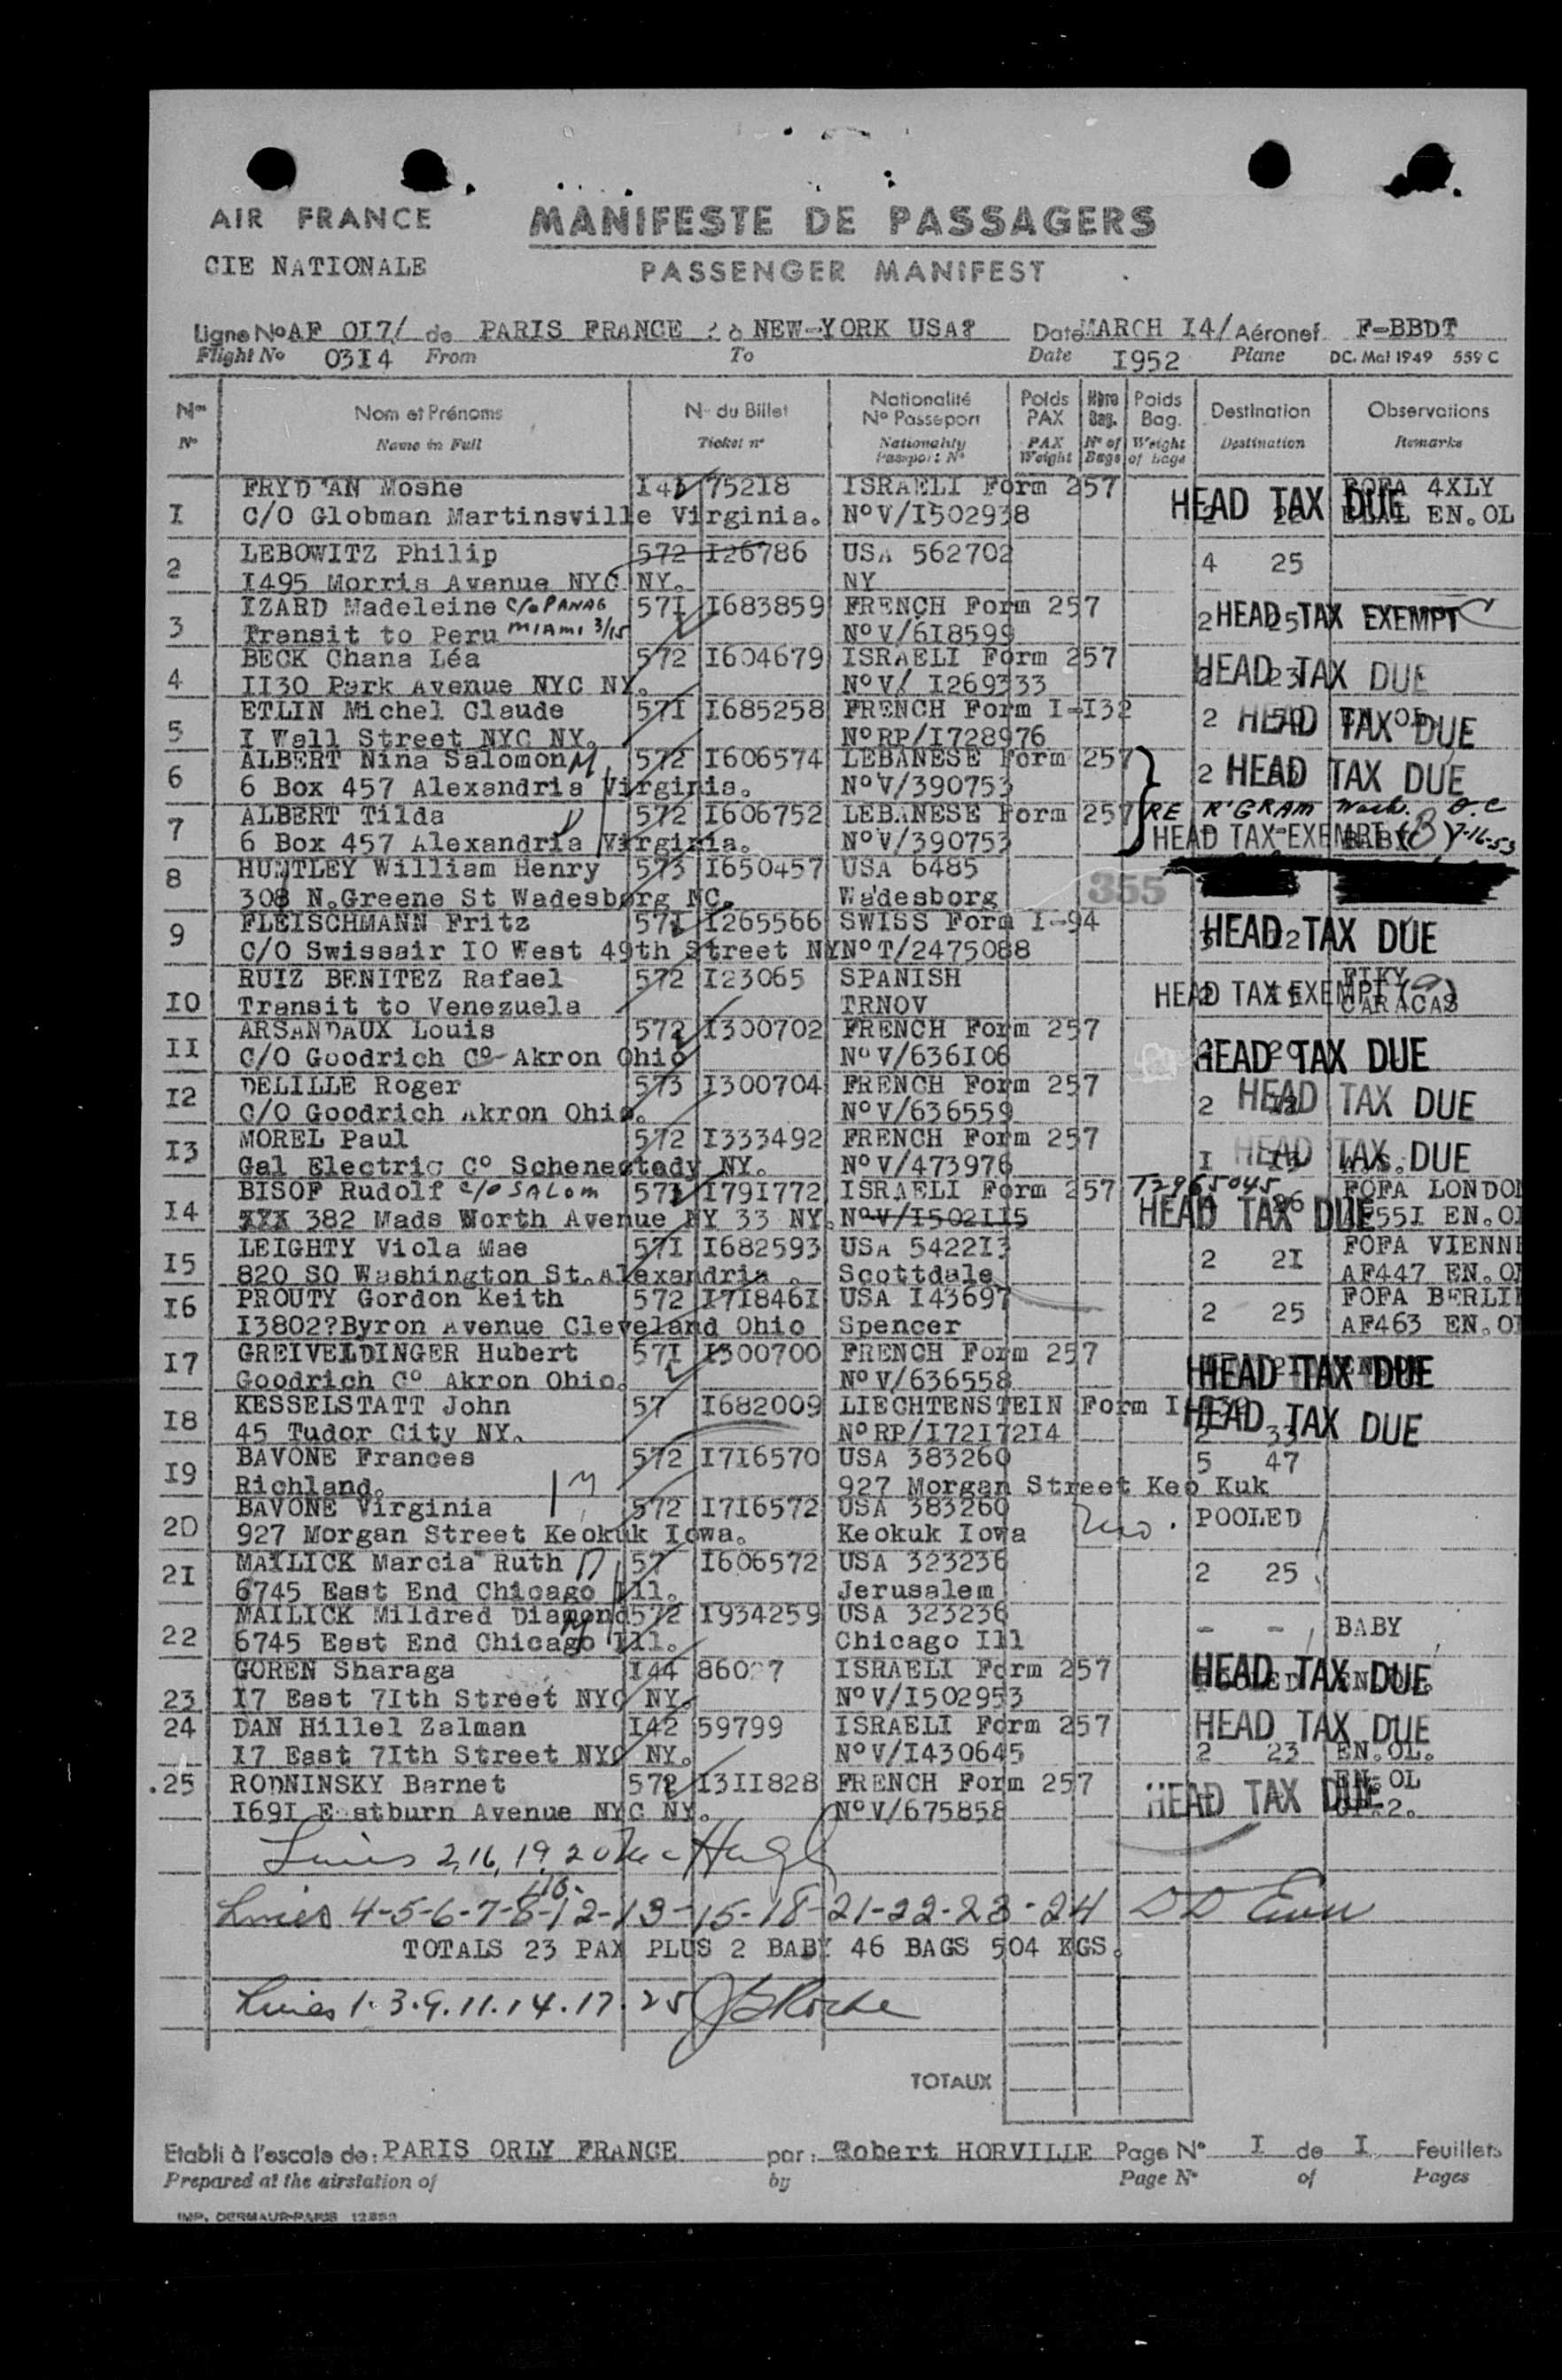 AIR FRANCE MANIFESTE DE PASSAGERS
CIE NATIONALE PASSENGER MANIFEST
Ligne No AF 0I7/ de PARIS FRANCE ? à NEW-YORK USA? Date MARCH I4/ Aéronef F-BBDT
Flight No 03I4 From To Date I952 Plane DC. Mal 1949 559 C
Nos Nom et Prénoms No du Billet Nationalité No Passeport Poids PAX Nbre Bag. Poids Bag. Destination Observations
No Name in Full Ticket no Nationality Passport No PAX Weight No of Bags Weight of bags Destination Remarks
FRYD AN Moshe I4 75218 ISRAELI Form 257 4XLY
I C/O Globman Martinsville Virginia. No V/I502938 HEAD TAX DUE EN.OL
LEBOWITZ Philip 572 I26786 USA 562702
2 I495 Morris Avenue NYC NY. NY 4 25
IZARD Madeleine c/o PANAG 57I I683859 FRENCH Form 257
3 Transit to Peru MIAMI 3/15 No V/6I8599 2 25 HEAD TAX EXEMPT
BECK Chana Léa 572 I604679 ISRAELI Form 257
4 II30 Park Avenue NYC NY. No V/ I269333 23 HEAD TAX DUE
ETLIN Michel Claude 57I I685258 FRENCH Form I-I32
5 I Wall Street NYC NY. No RP/I728976 2 HEAD TAX DUE
ALBERT Nina Salomon M 572 I606574 LEBANESE Form 257
6 6 Box 457 Alexandria Virginia. No V/390753 2 HEAD TAX DUE
ALBERT Tilda 572 I606752 LEBANESE Form 257 RE R'GRAM Wash. D.C
7 6 Box 457 Alexandria Virginia. No V/390753 HEAD TAX EXEMPT (B) 7-16-53
HUNTLEY William Henry 573 I650457 USA 6485
8 308 N.Greene St Wadesborg NC. Wadesborg 355
FLEISCHMANN Fritz 57I I265566 SWISS Form I-94
9 C/O Swissair I0 West 49th Street NY No T/2475088 HEAD TAX DUE
RUIZ BENITEZ Rafael 572 I23065 SPANISH FIKY
I0 Transit to Venezuela TRNOV HEAD TAX EXEMPT CARACAS
ARSANDAUX Louis 572 I300702 FRENCH Form 257
II C/O Goodrich Co Akron Ohio No V/636I06 HEAD TAX DUE
DELILLE Roger 573 I300704 FRENCH Form 257
I2 C/O Goodrich Akron Ohio. No V/636559 2 HEAD TAX DUE
MOREL Paul 572 I333492 FRENCH Form 257
I3 Gal Electric Co Schenectady NY. No V/473976 I HEAD TAX DUE
BISOF Rudolf c/o SALOM 57 I79I772 ISRAELI Form 257 T2965045 FOFA LONDON
I4 XXX 382 Mads Worth Avenue NY 33 NY. No V/I502II5 HEAD TAX DUE 26 55I EN.OL
LEIGHTY Viola Mae 57I I682593 USA 5422I3 FOFA VIENNE
I5 820 SO Washington St.Alexandria . Scottdale 2 2I AF447 EN.OL
PROUTY Gordon Keith 572 I7I846I USA I43697 FOFA BERLIN
I6 I3802?Byron Avenue Cleveland Ohio Spencer 2 25 AF463 EN.OL
GREIVELDINGER Hubert 57I I300700 FRENCH Form 257
I7 Goodrich Co Akron Ohio. No V/636558 HEAD TAX DUE
KESSELSTATT John 57 I682009 LIECHTENSTEIN Form I
I8 45 Tudor City NY. No RP/I72I72I4 2 33 HEAD TAX DUE
BAVONE Frances 572 I7I6570 USA 383260 5 47
I9 Richland. 927 Morgan Street Keo Kuk
BAVONE Virginia 572 I7I6572 USA 383260 POOLED
20 927 Morgan Street Keokuk Iowa. Keokuk Iowa
MAILICK Marcia Ruth 57 I606572 USA 323236
2I 6745 East End Chicago Ill. Jerusalem 2 25
MAILICK Mildred Diamond 572 I934259 USA 323236 - - BABY
22 6745 East End Chicago Ill. Chicago Ill
GOREN Sharaga I44 860 7 ISRAELI Form 257 HEAD TAX DUE
23 I7 East 7Ith Street NYC NY. No V/I502953
24 DAN Hillel Zalman I42 59799 ISRAELI Form 257 HEAD TAX DUE
I7 East 7Ith Street NYC NY. No V/I430645 2 23 EN.OL.
25 RODNINSKY Barnet 572 I3II828 FRENCH Form 257 EN.OL
I69I E stburn Avenue NYC NY. No V/675858 HEAD TAX DUE
Lines 2,16,19,20 McHugh
10-
Lines 4-5-6-7-8-12-13-15-18-21-22-23-24
TOTALS 23 PAX PLUS 2 BABY 46 BAGS 504 KGS.
Lines 1.3.9.11.14.17.25
TOTAUX
Etabli à l'escale de: PARIS ORLY FRANCE par: Robert HORVILLE Page No I de I Feuillets
Prepared at the airstation of by Page No of Pages
IMP. DERMAUR-PARIS